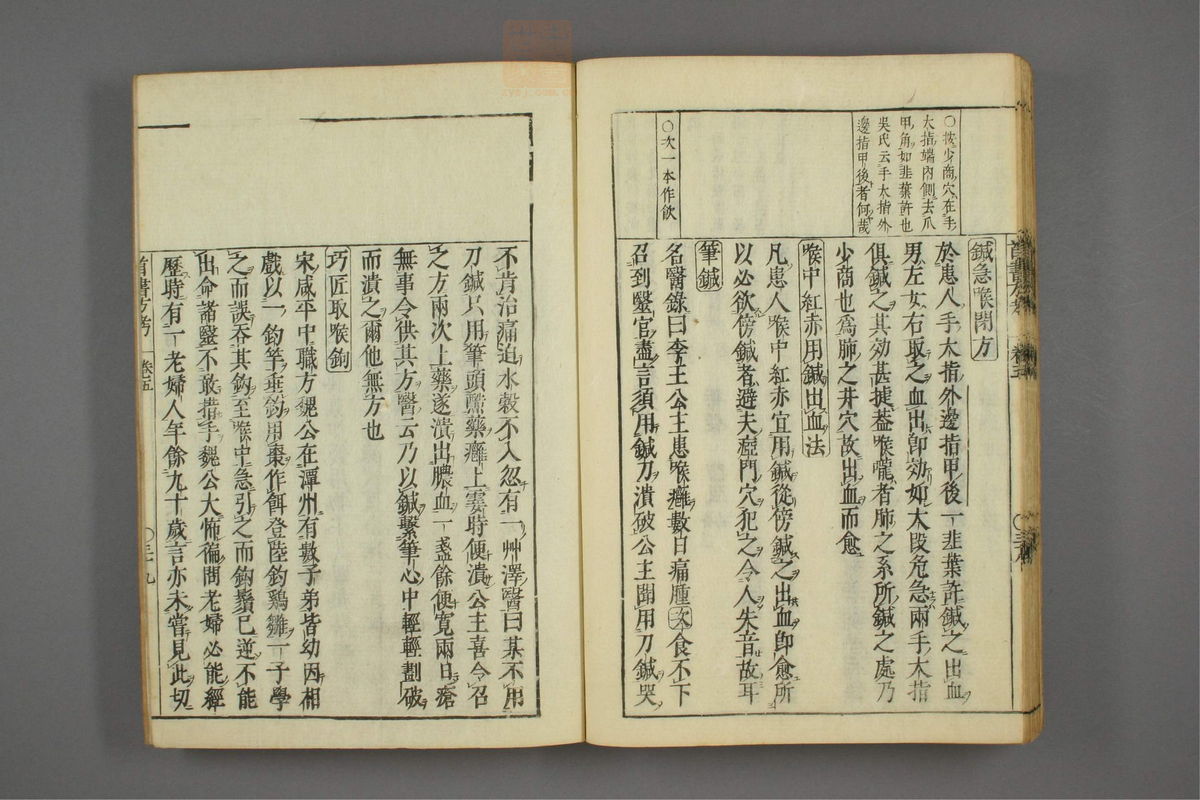 ○按少商穴在手
大指端内側去爪
甲角如韭葉許也
吳氏云手大指外
邊指甲後者何哉
○次一本作飲
鍼急喉閉方
於患人手大指外邊指甲後一韭葉許鍼之出血
男左女右取之血出卽効如大段危急兩手大指
俱鍼之其効甚捷葢喉嚨者肺之系所鍼之處乃
少商也爲肺之井穴故出血而愈
喉中紅赤用鍼出血法
凡患人喉中紅赤宜用鍼從傍鍼之出血卽愈所
以必欲傍鍼者避夫瘂門穴犯之令人失音故耳
筆鍼
名醫錄曰李王公主患喉癰數日痛腫次食不下
召到毉官盡言須用鍼刀潰破公主聞用刀鍼哭
不肯治痛迫水穀不入忽有一艸澤醫曰某不用
刀鍼只用筆頭蘸藥癰上霎時便潰公主喜令召
之方兩次上藥遂潰出膿血一盞餘便寬兩日瘡
無事令供其方醫云乃以鍼繫筆心中輕輕劃破
而潰之爾他無方也
巧匠取喉鉤
宋咸平中職方魏公在潭州有數子弟皆幼因相
戲以一鈎竿垂鈎用棗作餌登陸釣鷄雛一子學
之而誤吞其鈎至喉中急引之而鈎鬚已逆不能
出命諸毉不敢措手魏公大怖徧問老婦必能經
歷時有一老婦人年餘九十歲言亦未嘗見此切
卷五
○三九